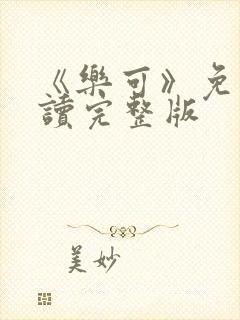 《樂可》免
讀完整版
美妙